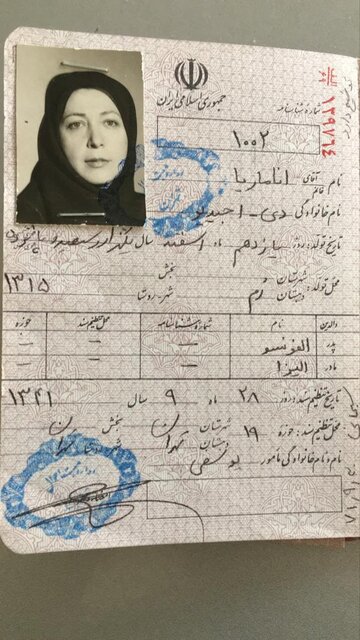 جمهوری اسلامی ایران
شماره شناسنامه
۱۰۰۲
نام خانم آقای اناماریا
نام خانوادگی دی-
تاریخ تولد: روز یازدهم ماه اسفند سال یکهزار و سیصد و پانزده
۱۳۱۵
محل تولد: شهرستان رم بخش
دهستان شهر-روستا
والدین نام شماره شناسنامه محل تنظیم سند حوزه
پدر الفونسو — — —
مادر الیزا — — —
تاریخ تنظیم سند: روز ۲۸ ماه ۹ سال ۱۳۴۱
محل تنظیم سند: حوزه ۱۹ شهرستان تهران بخش
دهستان شهر-روستا تهران
نام و نام خانوادگی مامور یوسفی